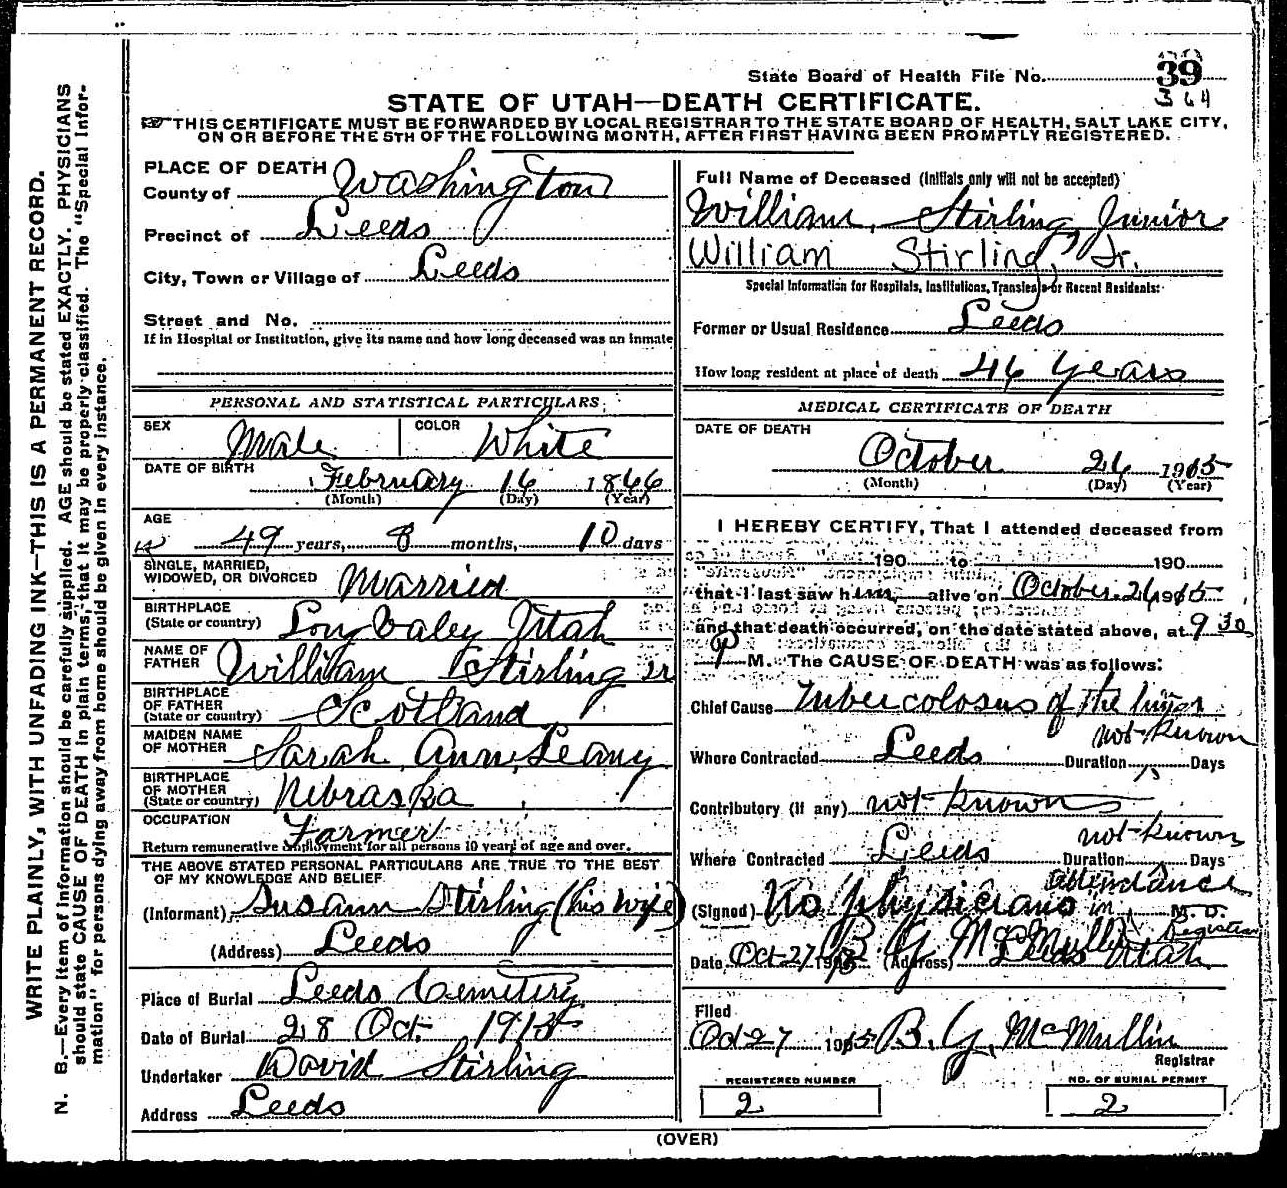 State Board of Health File No. 39
364
STATE OF UTAH—DEATH CERTIFICATE.
THIS CERTIFICATE MUST BE FORWARDED BY LOCAL REGISTRAR TO THE STATE BOARD OF HEALTH, SALT LAKE CITY,
ON OR BEFORE THE 5TH OF THE FOLLOWING MONTH, AFTER FIRST HAVING BEEN PROMPTLY REGISTERED.
WRITE PLAINLY, WITH UNFADING INK—THIS IS A PERMANENT RECORD.
N. B.—Every item of information should be carefully supplied. AGE should be stated EXACTLY. PHYSICIANS
should state CAUSE OF DEATH in plain terms, that it may be properly classified. The "Special Infor-
mation" for persons dying away from home should be given in every instance.
PLACE OF DEATH
County of Washington
Precinct of Leeds
City, Town or Village of Leeds
Street and No.
If in Hospital or Institution, give its name and how long deceased was an inmate
PERSONAL AND STATISTICAL PARTICULARS
SEX Male COLOR White
DATE OF BIRTH February 16 1866
(Month) (Day) (Year)
AGE
49 years, 8 months, 10 days
SINGLE, MARRIED,
WIDOWED, OR DIVORCED Married
BIRTHPLACE
(State or country) Long Valey Utah
NAME OF
FATHER William Stirling sr
BIRTHPLACE
OF FATHER
(State or country) Scotland
MAIDEN NAME
OF MOTHER Sarah Ann Leany
BIRTHPLACE
OF MOTHER
(State or country) Nebraska
OCCUPATION Farmer
Return remunerative employment for all persons 10 years of age and over.
THE ABOVE STATED PERSONAL PARTICULARS ARE TRUE TO THE BEST
OF MY KNOWLEDGE AND BELIEF
(Informant) Susann Stirling (his wife)
(Address) Leeds
Place of Burial Leeds Cemetery
Date of Burial 28 Oct. 1915
Undertaker David Stirling
Address Leeds
Full Name of Deceased (Initials only will not be accepted)
William, Stirling, Junior
William Stirling, Jr.
Special Information for Hospitals, Institutions, Transients or Recent Residents:
Former or Usual Residence Leeds
How long resident at place of death 46 years
MEDICAL CERTIFICATE OF DEATH
DATE OF DEATH
October 26 1915
(Month) (Day) (Year)
I HEREBY CERTIFY, That I attended deceased from
190 to 190
that I last saw him alive on October 26 1915
and that death occurred, on the date stated above, at 9 30
P M. The CAUSE OF DEATH was as follows:
Chief Cause Tubercolosus of the lungs
not known
Where Contracted Leeds Duration Days
Contributory (if any) not known
not known
Where Contracted Leeds Duration Days
attendance
(Signed) No physicians in M. D.
B. G. McMullin Registrar
Date Oct 27 1915 (Address) Leeds Utah
Filed
Oct 27 1915 B. G. McMullin
Registrar
REGISTERED NUMBER
2
NO. OF BURIAL PERMIT
2
(OVER)